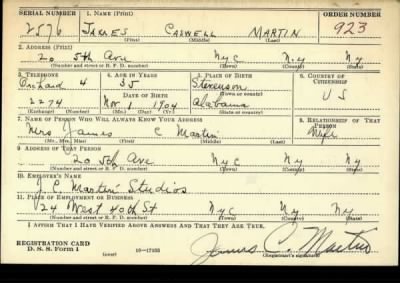 SERIAL NUMBER 1. NAME (Print) ORDER NUMBER
2576 JAMES CASWELL MARTIN 923
(First) (Middle) (Last)
2. ADDRESS (Print)
20 5th Ave NYC N.Y NY
(Number and street or R. F. D. number) (Town) (County) (State)
3. TELEPHONE 4. AGE IN YEARS 5. PLACE OF BIRTH 6. COUNTRY OF CITIZENSHIP
Orchard 4 35 Stevenson
DATE OF BIRTH (Town or county)
2274 Nov 1 1904 Alabama U S
(Exchange) (Number) (Mo.) (Day) (Yr.) (State or country)
7. NAME OF PERSON WHO WILL ALWAYS KNOW YOUR ADDRESS 8. RELATIONSHIP OF THAT PERSON
Mrs James C Martin Wife
(Mr., Mrs., Miss) (First) (Middle) (Last)
9. ADDRESS OF THAT PERSON
20 5th Ave NYC NY NY
(Number and street or R. F. D. number) (Town) (County) (State)
10. EMPLOYER'S NAME
J. C. Martin Studios
11. PLACE OF EMPLOYMENT OR BUSINESS
24 West 40th St NYC NY NY
(Number and street or R. F. D. number) (Town) (County) (State)
I AFFIRM THAT I HAVE VERIFIED ABOVE ANSWERS AND THAT THEY ARE TRUE.
REGISTRATION CARD
D. S. S. Form 1 (over) 16—17105 James C. Martin
(Registrant's signature)